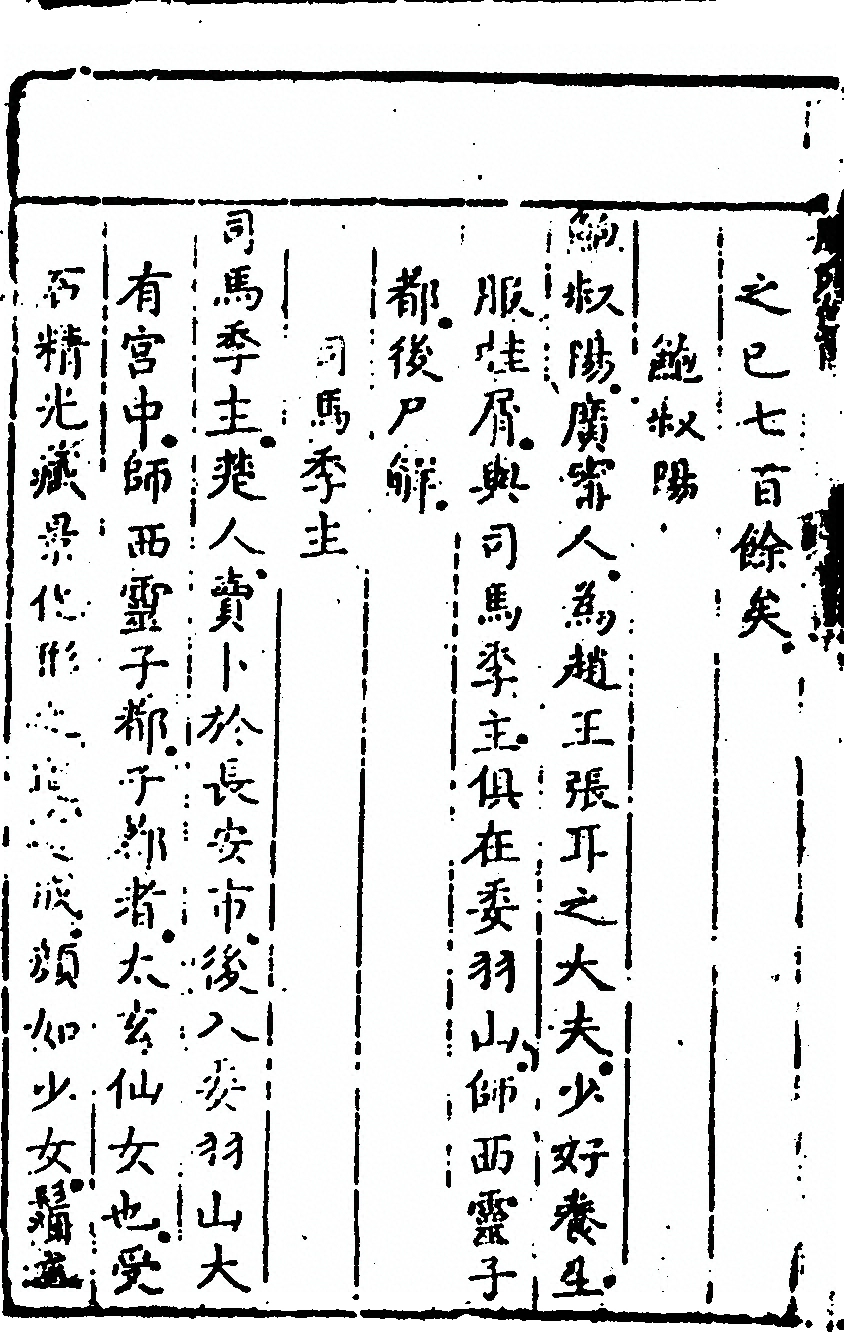 之已七百餘矣
鮑叔陽
鮑叔陽廣甯人為趙王張耳之大夫少好養生
服桂屑與司馬季主俱在委羽山師西靈子
都後尸解
司馬季主
司馬季主楚人賣卜於長安市後入委羽山大
有宮中師西靈子都子都者太玄仙女也受
石精光藏景化形之道 成顏如少女鬚